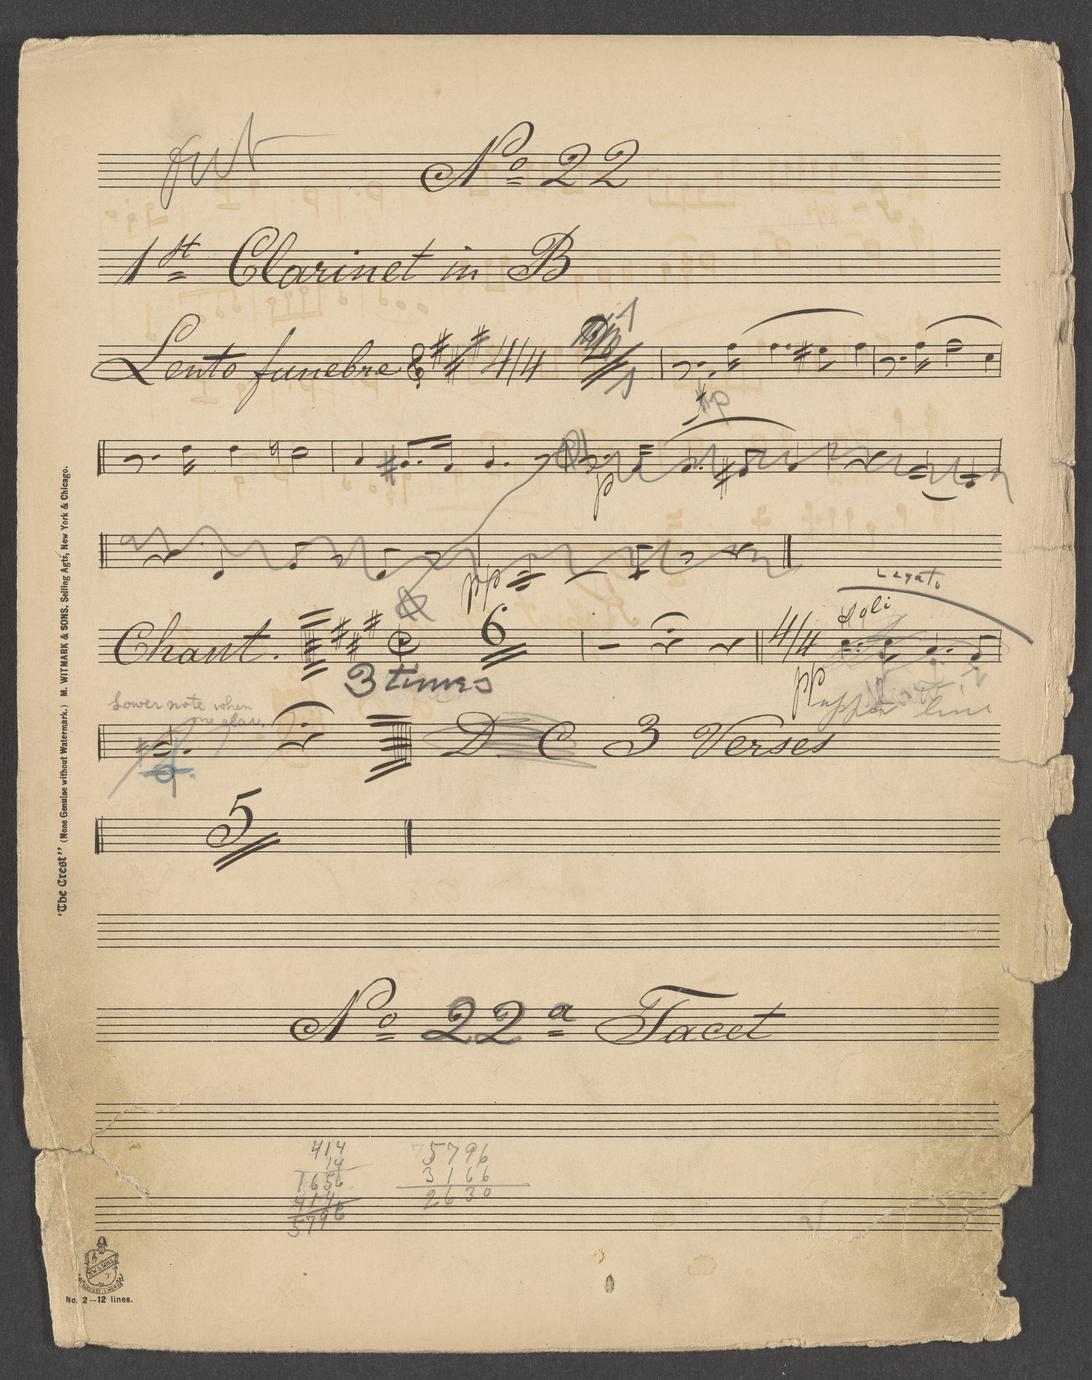 cut
No 22
1st Clarinet in B
Lento funebre 4/4
1
1
p
p
pp
Legato
Chant. 6 4/4 Soli
3 times
pp
upper line
Lower note when
one plays
D C 3 Verses
5
No 22a Tacet
414
14
1656
414
5796
5796
3166
2630
"The Crest" (None Genuine without Watermark.) M. WITMARK & SONS, Selling Agts, New York & Chicago.
No. 2—12 lines.